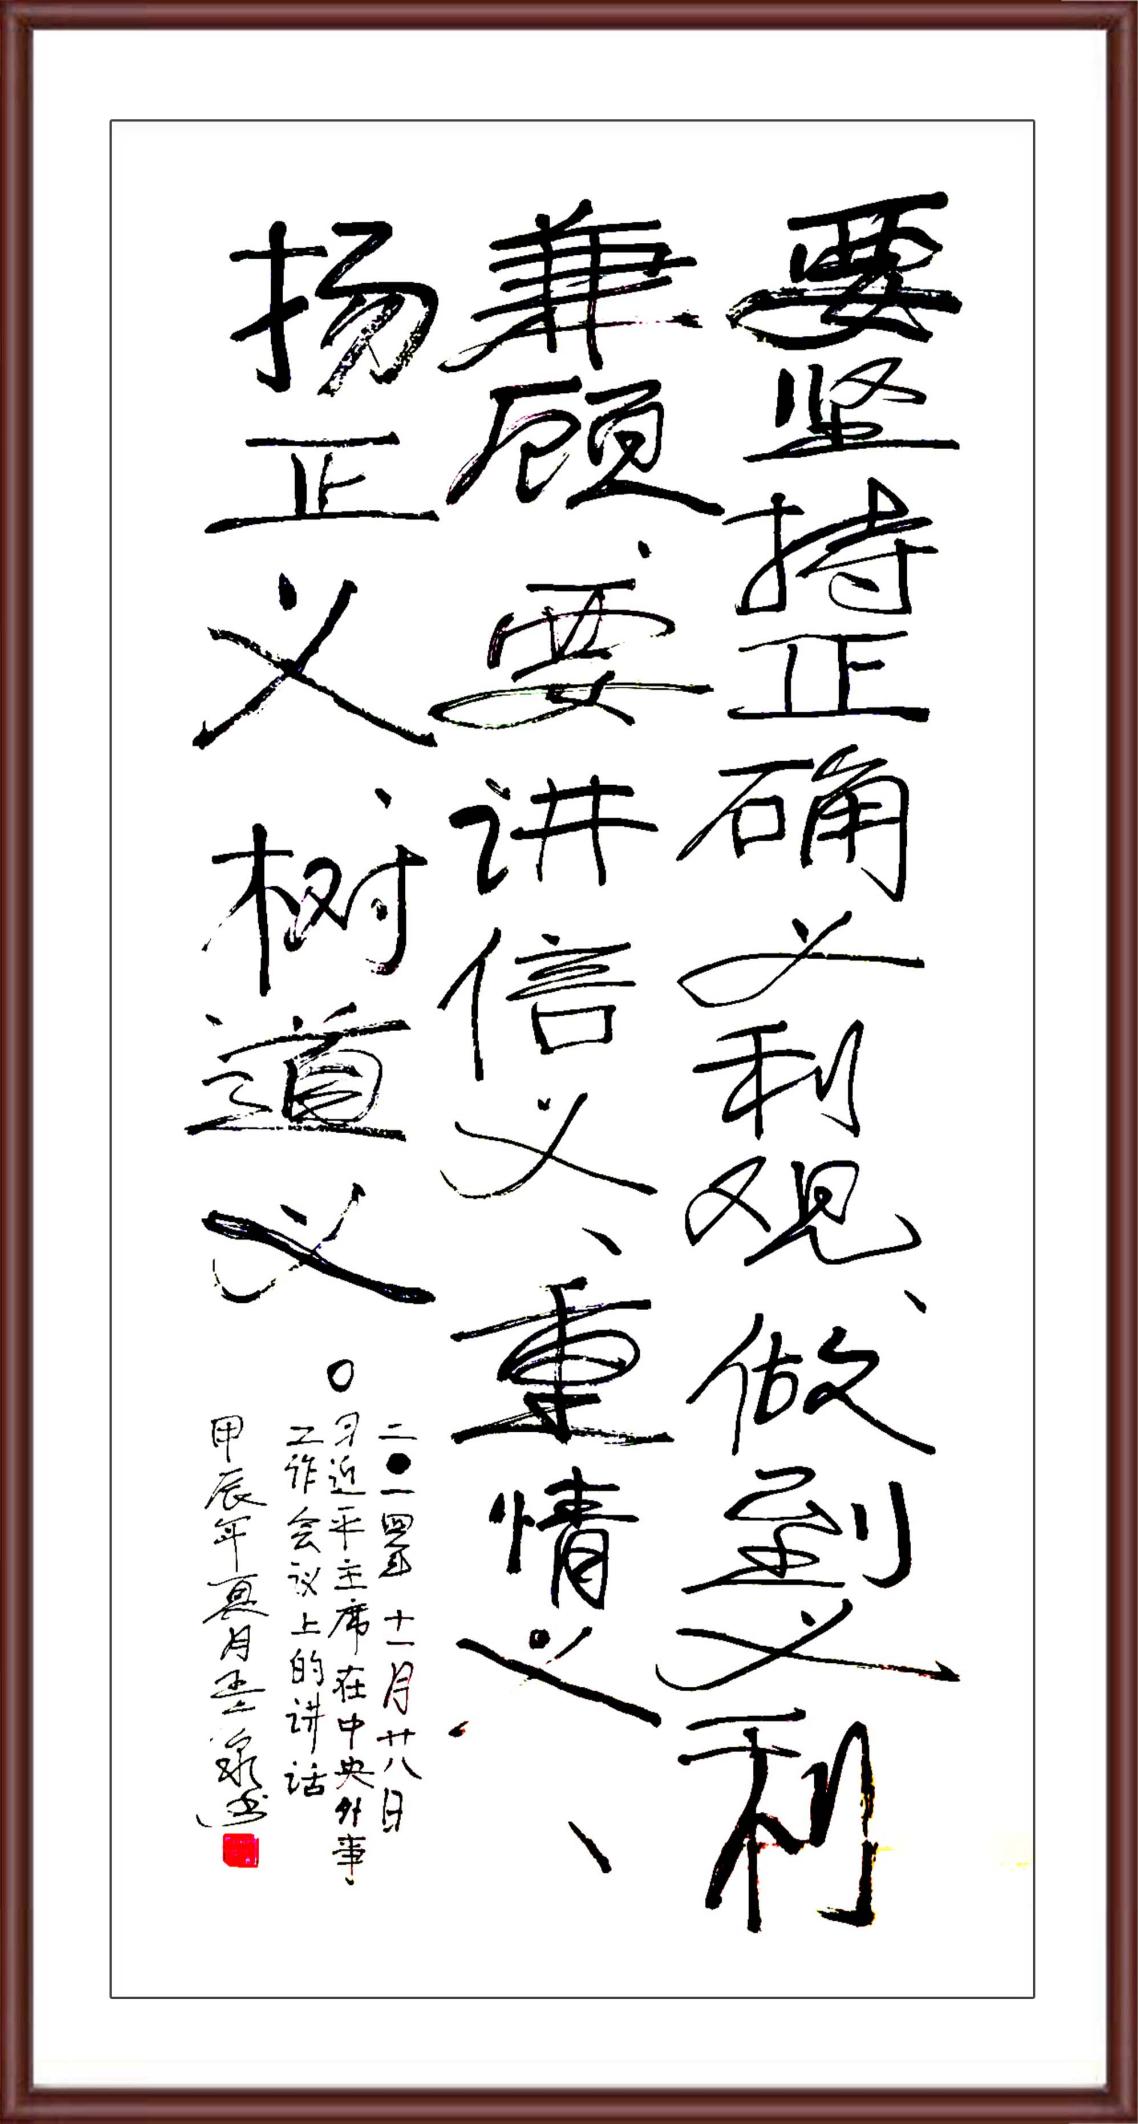 要坚持正确义利观、做到义利
兼顾、要讲信义、重情义、
扬正义、树道义。
二〇一四年十一月廿八日
习近平主席在中央外事
工作会议上的讲话
甲辰年夏月